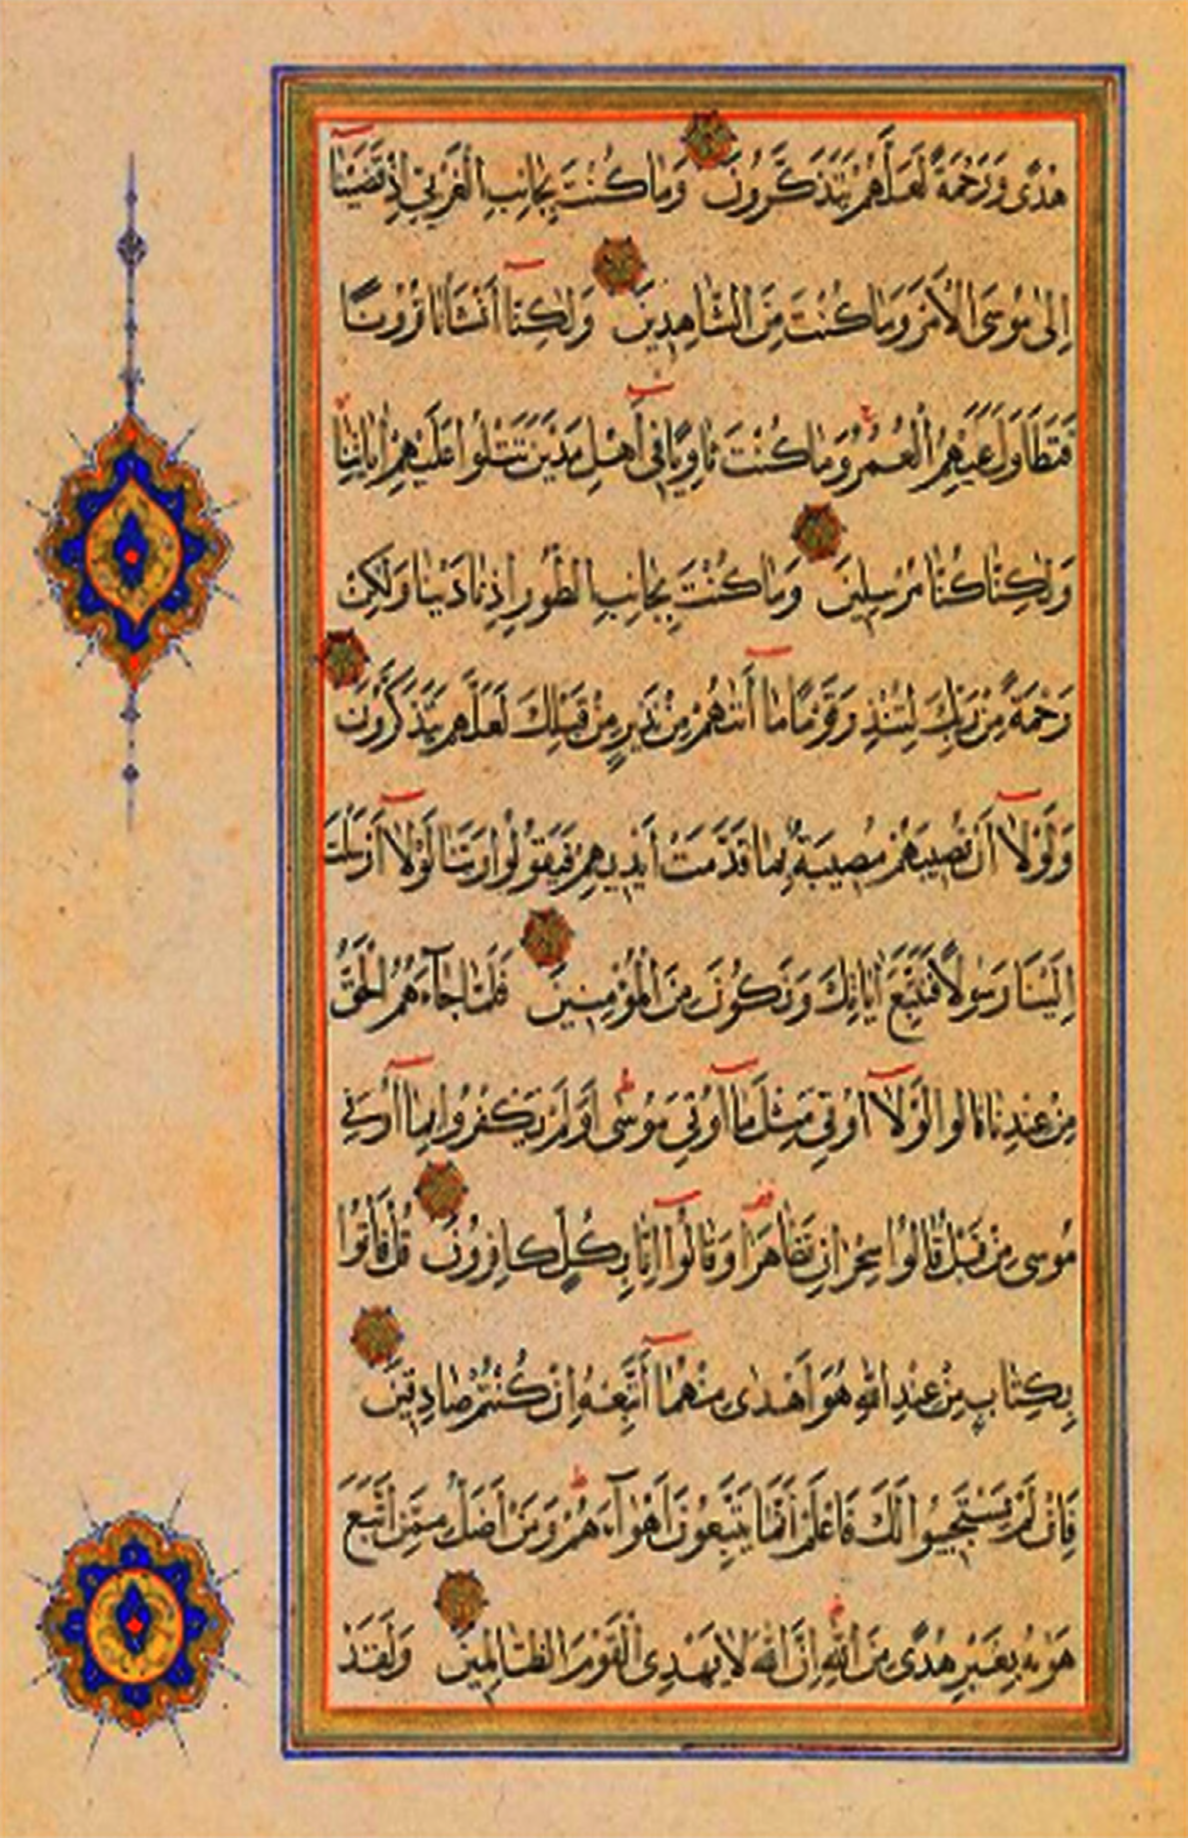 هُدًى وَرَحْمَةً لَعَلَّهُمْ يَتَذَكَّرُونَ وَمَا كُنْتَ بِجَانِبِ الْغَرْبِيِّ إِذْ قَضَيْنَا
إِلَىٰ مُوسَى الْأَمْرَ وَمَا كُنْتَ مِنَ الشَّاهِدِينَ وَلَٰكِنَّا أَنْشَأْنَا قُرُونًا
فَتَطَاوَلَ عَلَيْهِمُ الْعُمُرُ وَمَا كُنْتَ ثَاوِيًا فِي أَهْلِ مَدْيَنَ تَتْلُوا عَلَيْهِمْ اٰيَاتِنَا
وَلَٰكِنَّا كُنَّا مُرْسِلِينَ وَمَا كُنْتَ بِجَانِبِ الطُّورِ إِذْ نَادَيْنَا وَلَٰكِنْ
رَحْمَةً مِنْ رَبِّكَ لِتُنْذِرَ قَوْمًا مَا أَتَاهُمْ مِنْ نَذِيرٍ مِنْ قَبْلِكَ لَعَلَّهُمْ يَتَذَكَّرُونَ
وَلَوْلَا أَنْ تُصِيبَهُمْ مُصِيبَةٌ بِمَا قَدَّمَتْ أَيْدِيهِمْ فَيَقُولُوا رَبَّنَا لَوْلَا أَرْسَلْتَ
إِلَيْنَا رَسُولًا فَنَتَّبِعَ اٰيَاتِكَ وَنَكُونَ مِنَ الْمُؤْمِنِينَ فَلَمَّا جَآءَهُمُ الْحَقُّ
مِنْ عِنْدِنَا قَالُوا لَوْلَا أُوتِيَ مِثْلَ مَا أُوتِيَ مُوسَىٰ أَوَلَمْ يَكْفُرُوا بِمَا أُوتِيَ
مُوسَىٰ مِنْ قَبْلُ قَالُوا سِحْرَانِ تَظَاهَرَا وَقَالُوا إِنَّا بِكُلٍّ كَافِرُونَ قُلْ فَأْتُوا
بِكِتَابٍ مِنْ عِنْدِ اللَّهِ هُوَ أَهْدَىٰ مِنْهُمَا أَتَّبِعْهُ إِنْ كُنْتُمْ صَادِقِينَ
فَإِنْ لَمْ يَسْتَجِيبُوا لَكَ فَاعْلَمْ أَنَّمَا يَتَّبِعُونَ أَهْوَآءَهُمْ وَمَنْ أَضَلُّ مِمَّنِ اتَّبَعَ
هَوٰىهُ بِغَيْرِ هُدًى مِنَ اللَّهِ إِنَّ اللَّهَ لَا يَهْدِي الْقَوْمَ الظَّالِمِينَ وَلَقَدْ